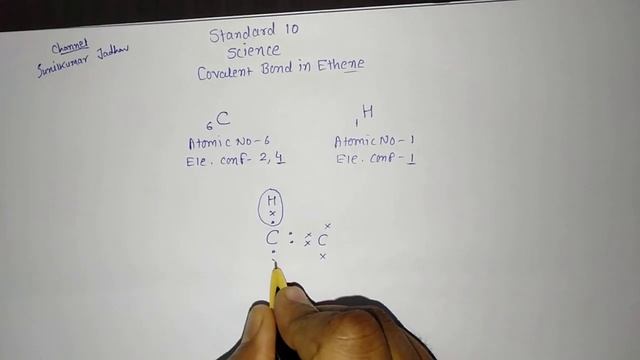 Channel
Sunilkumar Jadhav
Standard 10
Science
Covalent Bond in Ethene
6C
Atomic No-6
Ele. conf- 2, 4
1H
Atomic No-1
Ele. conf- 1
H
x
•
C : xx C x x
•